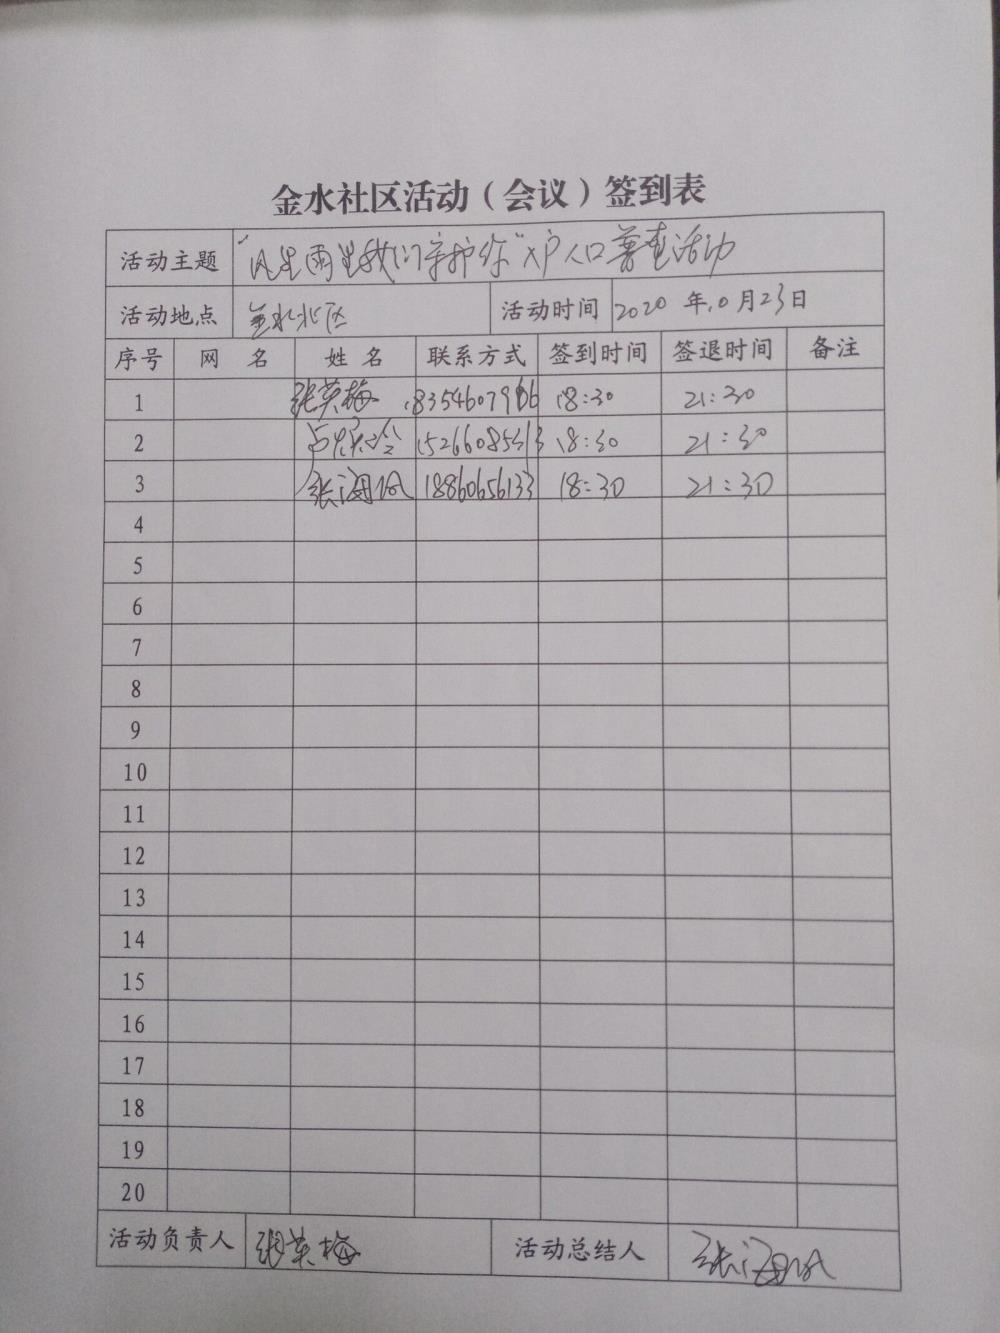 金水社区活动（会议）签到表
活动主题 "风里雨里我们守护你"入户人口普查活动
活动地点 金水北区 活动时间 2020 年10月23日
序号 网 名 姓 名 联系方式 签到时间 签退时间 备注
1 张英梅 18:30 21:30
2 18:30 21:30
3 张海风 18860656133 18:30 21:30
4
5
6
7
8
9
10
11
12
13
14
15
16
17
18
19
20
活动负责人 张英梅 活动总结人 张海风